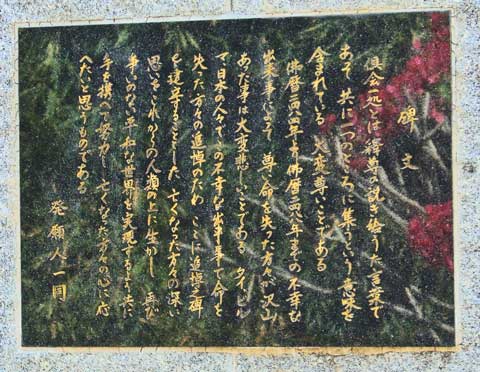 碑文
倶会一処とは釋尊の説き給うた言葉で
あって 共に一つのところに集るという意味を
含まれている 大変尊いことである
佛暦二四八四年より佛暦二四八八年までの不幸な
出来事によって 尊い命を失った方々が沢山
あった事は大変悲しいことである タイ、ビルマ
で 日本の人々でこの不幸な出来事で命を
失った方々の追悼のため ここに追悼之碑
を建立することとした 亡くなった方々の深い
思いをこれからの人類のために生かし 再び
争いのない平和な世界が実現するよう共に
手を携へて努力し 亡くなった方々の心に応
へたいと思うものである
発願人一同